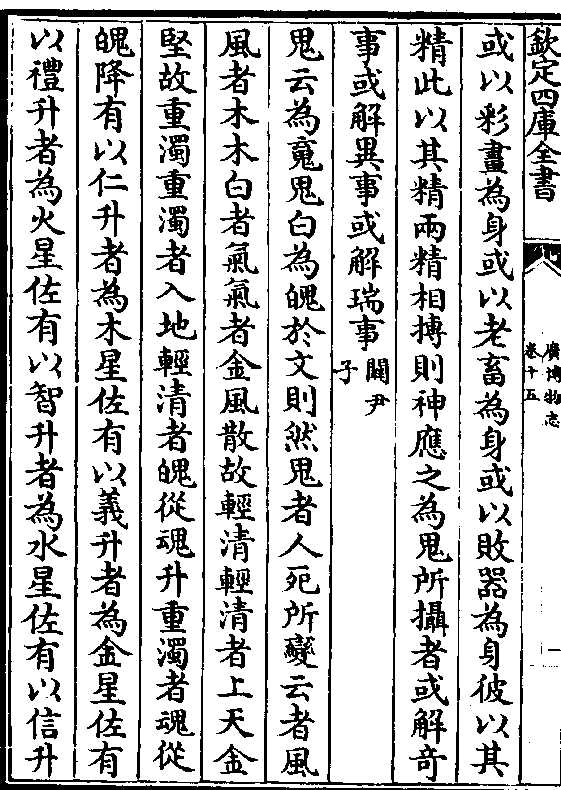 欽定四庫全書
廣博物志
卷十五
或以彩畫為身或以老畜為身或以敗器為身彼以其
精此以其精兩精相搏則神應之為鬼所攝者或解奇
事或解異事或解瑞事關尹子
鬼云為䰟鬼白為魄於文則然鬼者人死所變云者風
風者木木白者氣氣者金風散故輕清輕清者上天金
堅故重濁重濁者入地輕清者魄從魂升重濁者魂從
魄降有以仁升者為木星佐有以義升者為金星佐有
以禮升者為火星佐有以智升者為水星佐有以信升